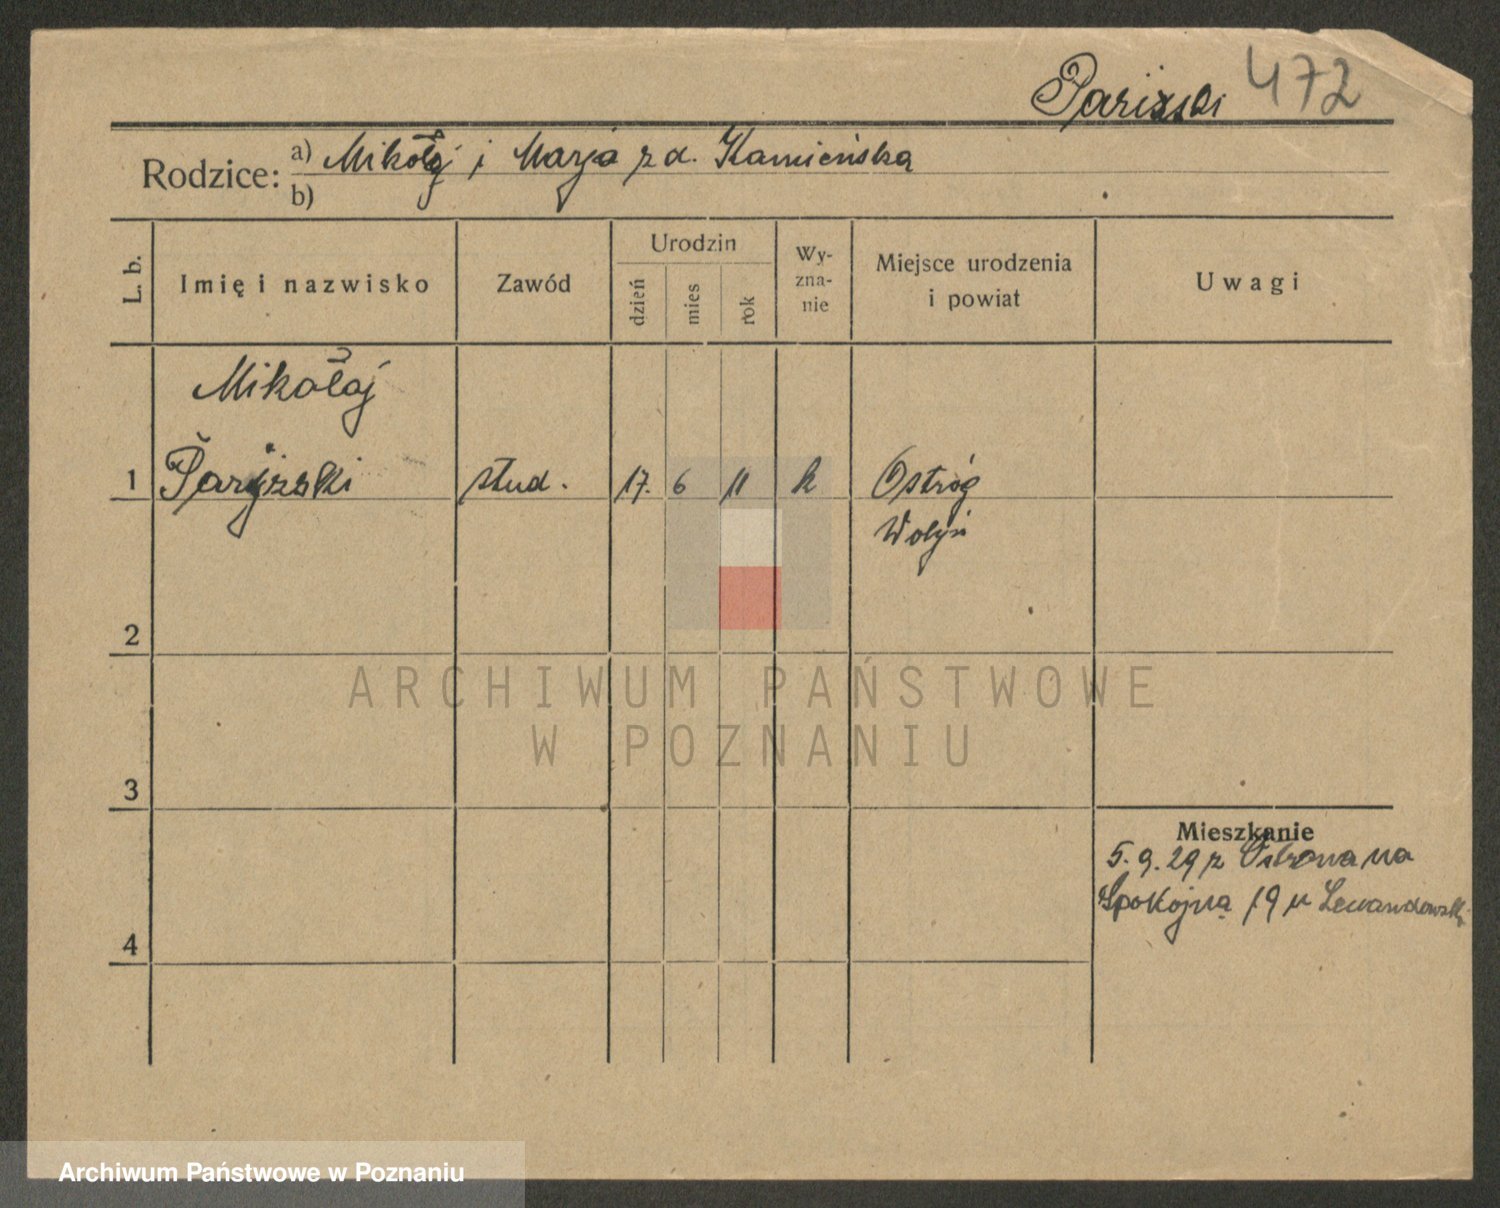 Pariżski 472
Rodzice: a) Mikołaj i Marja z d. Kamieńska
b)
L. b.
Imię i nazwisko
Zawód
Urodzin
dzień
mies
rok
Wy-
zna-
nie
Miejsce urodzenia
i powiat
Uwagi
Mikołaj
1 Paryżski stud. 17. 6 11 k Ostróg
Wołyń
2
ARCHIWUM PAŃSTWOWE
W POZNANIU
3
Mieszkanie
5.9.29 z Ostroga na
4
Spokojną 19 u Lewandowski
Archiwum Państwowe w Poznaniu